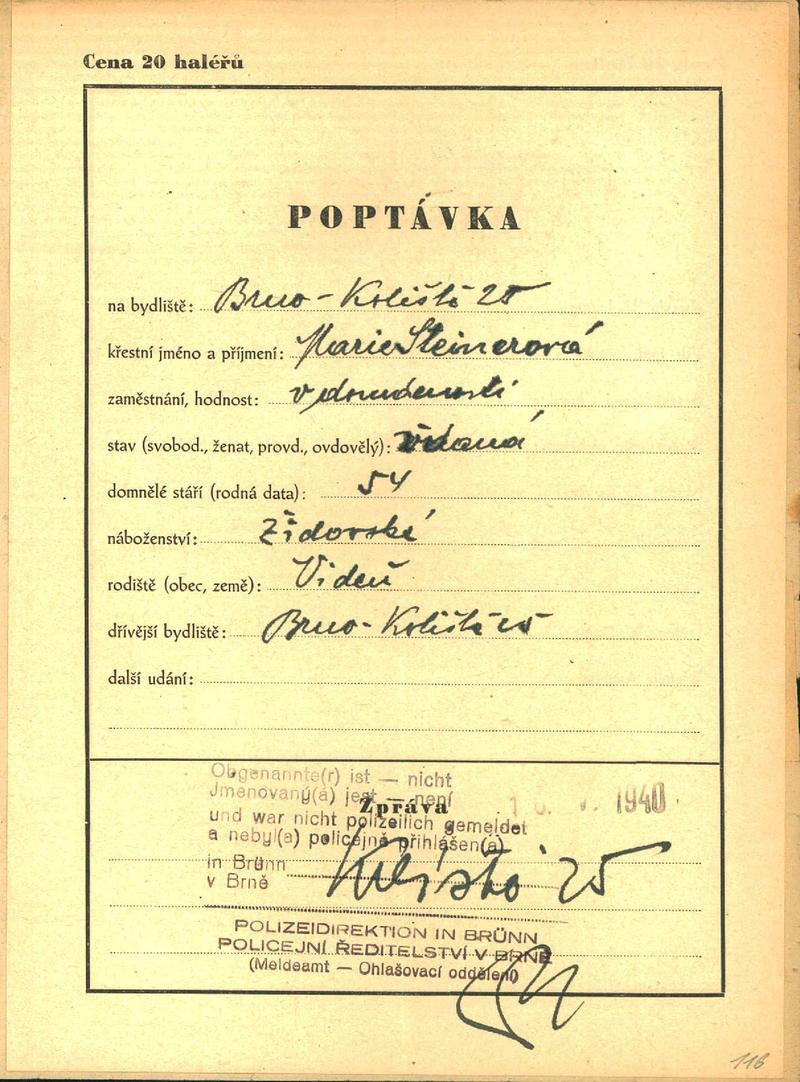 Cena 20 haléřů
POPTÁVKA
na bydliště: Brno - Koliště 25
křestní jméno a příjmení: Marie Steinerová
zaměstnání, hodnost: v domácnosti
stav (svobod., ženat, provd., ovdovělý): vdaná
domnělé stáří (rodná data): 54
náboženství: Židovské
rodiště (obec, země): Vídeň
dřívější bydliště: Brno - Koliště 25
další udání:
Obgenannte(r) ist — nicht
Jmenovaný(á) jest — není
Zpráva
1940
und war nicht polizeilich gemeldet
a nebyl(a) policejně přihlášen(a)
in Brünn
v Brně
Koliště 25
POLIZEIDIREKTION IN BRÜNN
POLICEJNÍ ŘEDITELSTVÍ V BRNĚ
(Meldeamt — Ohlašovací oddělení)
116